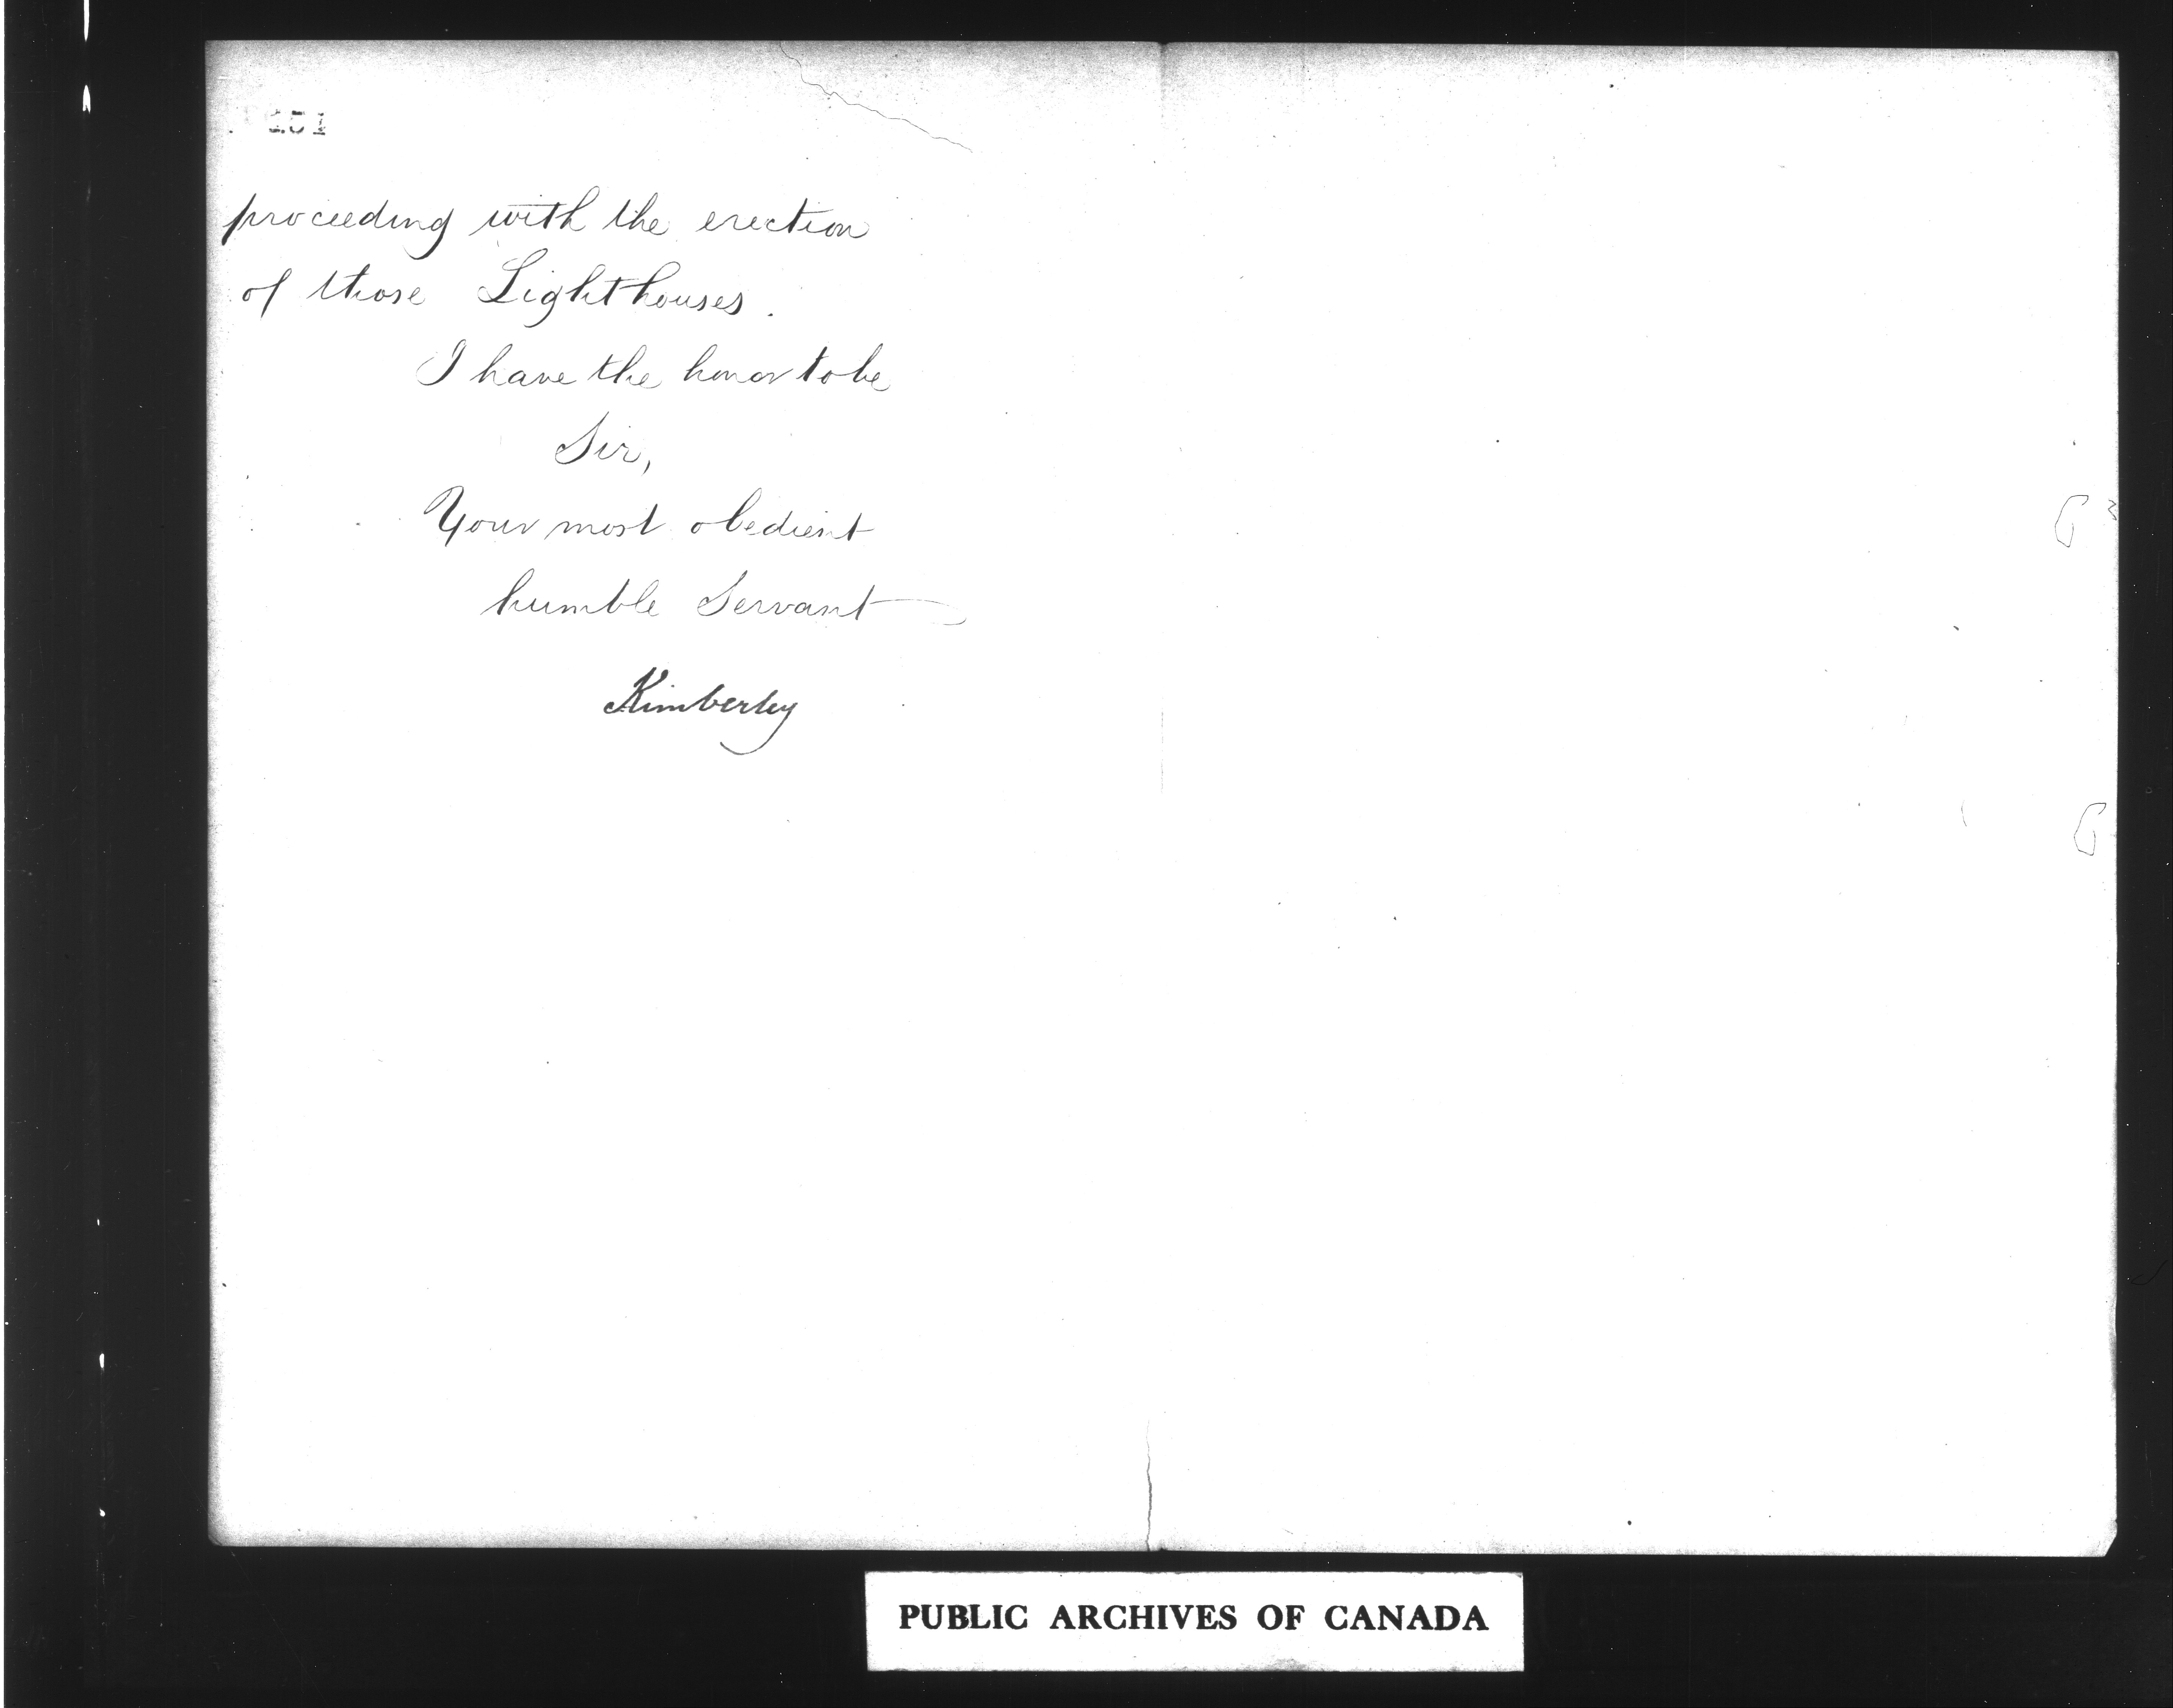 151
proceeding with the erection
of those Lighthouses.
I have the honor to be
Sir,
Your most obedient
humble Servant
Kimberley
PUBLIC ARCHIVES OF CANADA